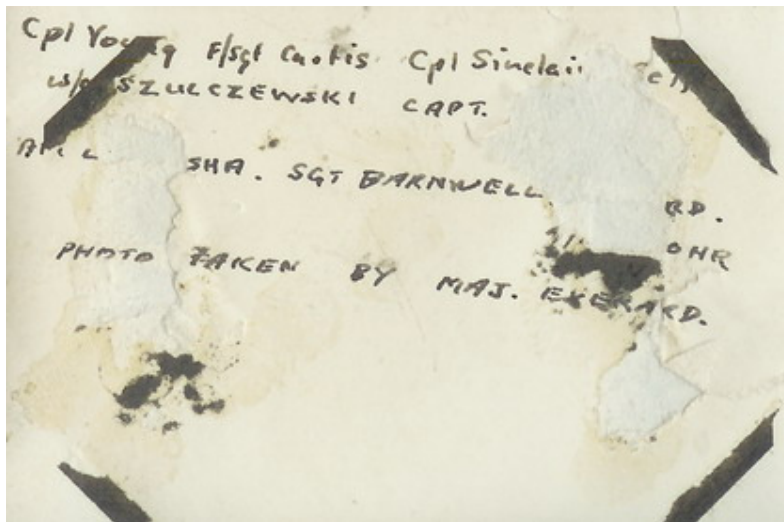 Cpl Young F/Sgt Curtis Cpl Sinclair
SZULCZEWSKI CAPT.
SHA. SGT BARNWELL RD.
OHR
PHOTO TAKEN BY MAJ. EVERARD.